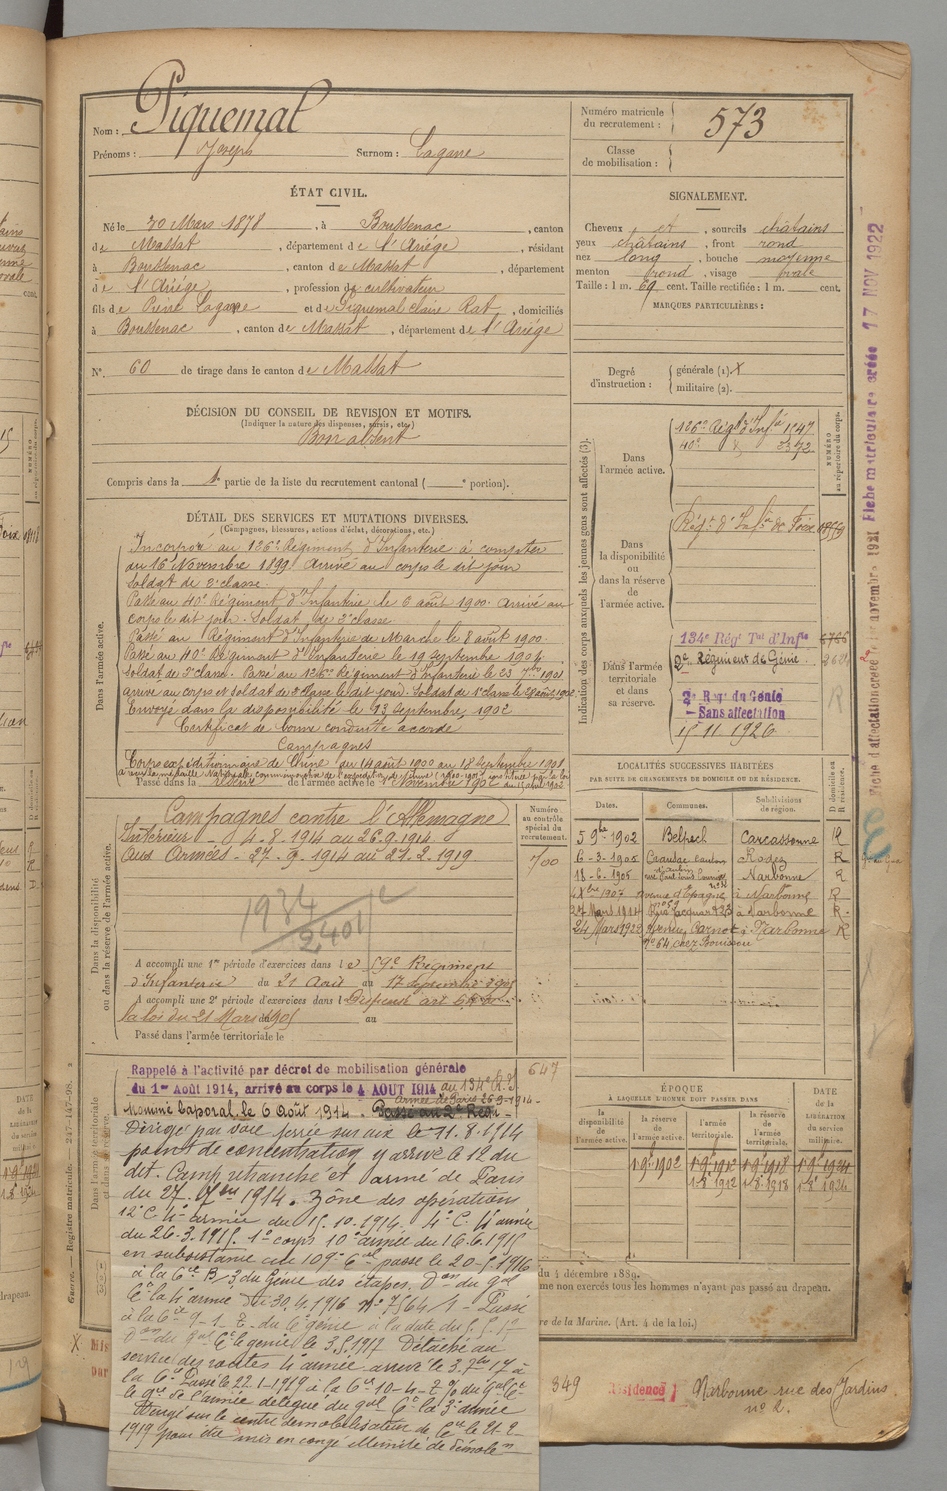 Nom : Piquemal
Prénoms : Joseph Surnom : Lagarre
Numéro matricule du recrutement : 573
Classe de mobilisation :
ÉTAT CIVIL.
Né le 20 Mars 1878, à Boussenac, canton
de Massat, département de l'Ariége, résidant
à Boussenac, canton de Massat, département
de l'Ariége, profession de cultivateur
fils de Pierre Lagarre et de Piquemal Claire Rat, domiciliés
à Boussenac, canton de Massat, département de l'Ariége
N° 60 de tirage dans le canton de Massat
SIGNALEMENT.
Cheveux et, sourcils châtains
yeux châtains, front rond
nez long, bouche moyenne
menton rond, visage ovale
Taille : 1 m. 69 cent. Taille rectifiée : 1 m. cent.
MARQUES PARTICULIÈRES :
Degré d'instruction : générale (1). X
militaire (2).
DÉCISION DU CONSEIL DE REVISION ET MOTIFS.
(Indiquer la nature des dispenses, sursis, etc.)
Bon absent
Compris dans la 1e partie de la liste du recrutement cantonal ( e portion).
DÉTAIL DES SERVICES ET MUTATIONS DIVERSES.
(Campagnes, blessures, actions d'éclat, décorations, etc.)
Dans l'armée active.
Incorporé au 126e Régiment d'Infanterie à compter
du 16 Novembre 1899. Arrivé au corps le dit jour
soldat de 2e classe.
Passé au 40e Régiment d'Infanterie le 6 août 1900. Arrivé au
corps le dit jour. Soldat de 2e classe
Passé au Régiment d'Infanterie de Marche le 8 août 1900.
Passé au 40e Régiment d'Infanterie le 19 Septembre 1901.
Soldat de 2e classe. Passé au 126e Régiment d'Infanterie le 23 7bre 1901
arrivé au corps et soldat de 2e classe le dit jour. Soldat de 1e classe le 28 août 1902.
Envoyé dans la disponibilité le 13 Septembre 1902
Certificat de bonne conduite accordé
Campagnes
Corps expéditionnaire de Chine du 14 août 1900 au 18 Septembre 1901
Passé dans la réserve de l'armée active le 1 Novembre 1902
Indication des corps auxquels les jeunes gens sont affectés (3).
NUMÉRO au répertoire du corps.
Dans l'armée active.
126e Rég. d'Infie 1547
40e 3372
Dans la disponibilité ou dans la réserve de l'armée active.
Régt d'Infie de Foix
Dans l'armée territoriale et dans sa réserve.
134e Rég Tal d'Infie
2e Régiment de Génie
2e Reg du Génie
— Sans affectation
15 11 1926
LOCALITÉS SUCCESSIVES HABITÉES
PAR SUITE DE CHANGEMENTS DE DOMICILE OU DE RÉSIDENCE.
D domicile ou R résidence.
Dates. Communes. Subdivisions de région.
5 9bre 1902 Belpech Carcassonne R
6-3-1905 Rodez R
18-6-1905 Narbonne R
1907 avenue d'Espagne à Narbonne R
27 Mars 1914 Rue Jacquard 23 à Narbonne R.
24 Mars 1922 Avenue Carnot à Narbonne R
n° 64 chez
Dans la disponibilité ou dans la réserve de l'armée active.
Numéro au contrôle spécial du recrutement.
Campagnes contre l'Allemagne
Intérieur 4-8-1914 au 26-9-1914
Aux Armées - 27-9-1914 au 21-2-1919
700
1934
2401
A accompli une 1re période d'exercices dans le 59e Régiment
d'Infanterie du 21 Août au 17 septembre 1905
A accompli une 2e période d'exercices dans l Dispensé art
la loi du 21 Mars 1905 au
Passé dans l'armée territoriale le
Dans l'armée territoriale et dans sa réserve.
Rappelé à l'activité par décret de mobilisation générale
du 1er Août 1914, arrivé au corps le 4 AOUT 1914 au 134e R.I.
647
Nommé Caporal le 6 Août 1914. Passé au 2e Régt
Dirigé par voie ferrée sur aix le 11.8.1914
point de concentration y arrivé le 12 du
dit. Camp retranché et armé de Paris
du 27. 7bre 1914. Zône des opérations
12e C. 4e armée du 15.10.1914. 4e C. 4e armée
du 26-3-1915. 1e corps 10e armée du 16.6.1915
en subsistance cie 109e Cal passé le 20-5-1916
à la Cie B/3 du Génie des étapes. Don du gal
Ct la 4e armée du 30.4.1916 n° 7564/1 - Passé
à la Cie 9-1-T. du 6e génie à la date du
Don du gal Ct le génie le 3.5.1917 Détaché au
service des routes 4e armée arrivé le 3.7bre 17 à
la Cie Passé le 22-1-1919 à la Cie 10-4-T % du gal Ct
le gie de l'armée délégué du gal Ct la 3e armée
Dirigé sur le centre démobilisateur de le 21-2
1919 pour être mis en congé illimité de démolon
ÉPOQUE
À LAQUELLE L'HOMME DOIT PASSER DANS
la disponibilité de l'armée active.
la réserve de l'armée active.
l'armée territoriale.
la réserve de l'armée territoriale.
DATE de la LIBÉRATION du service militaire.
1 9bre 1902 1 9bre 1912 1 9bre 1918 1 9bre 1924
1-8-1912 1-8-1918 1-8-1924
du 4 décembre 1889.
me non exercés tous les hommes n'ayant pas passé au drapeau.
re de la Marine. (Art. 4 de la loi.)
349
Résidence : Narbonne rue des Jardins
n° 2.
Guerre. — Registre matricule. 247-147-98.
Fiche matriculaire créée 17 NOV 1922